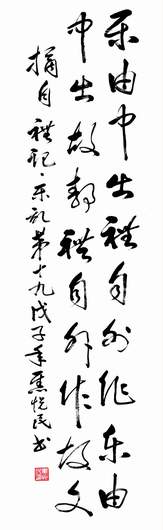 乐由中出禮自外作乐由
中出故静禮自外作故文
摘自禮记·乐记第十九戊子年焦悦民书